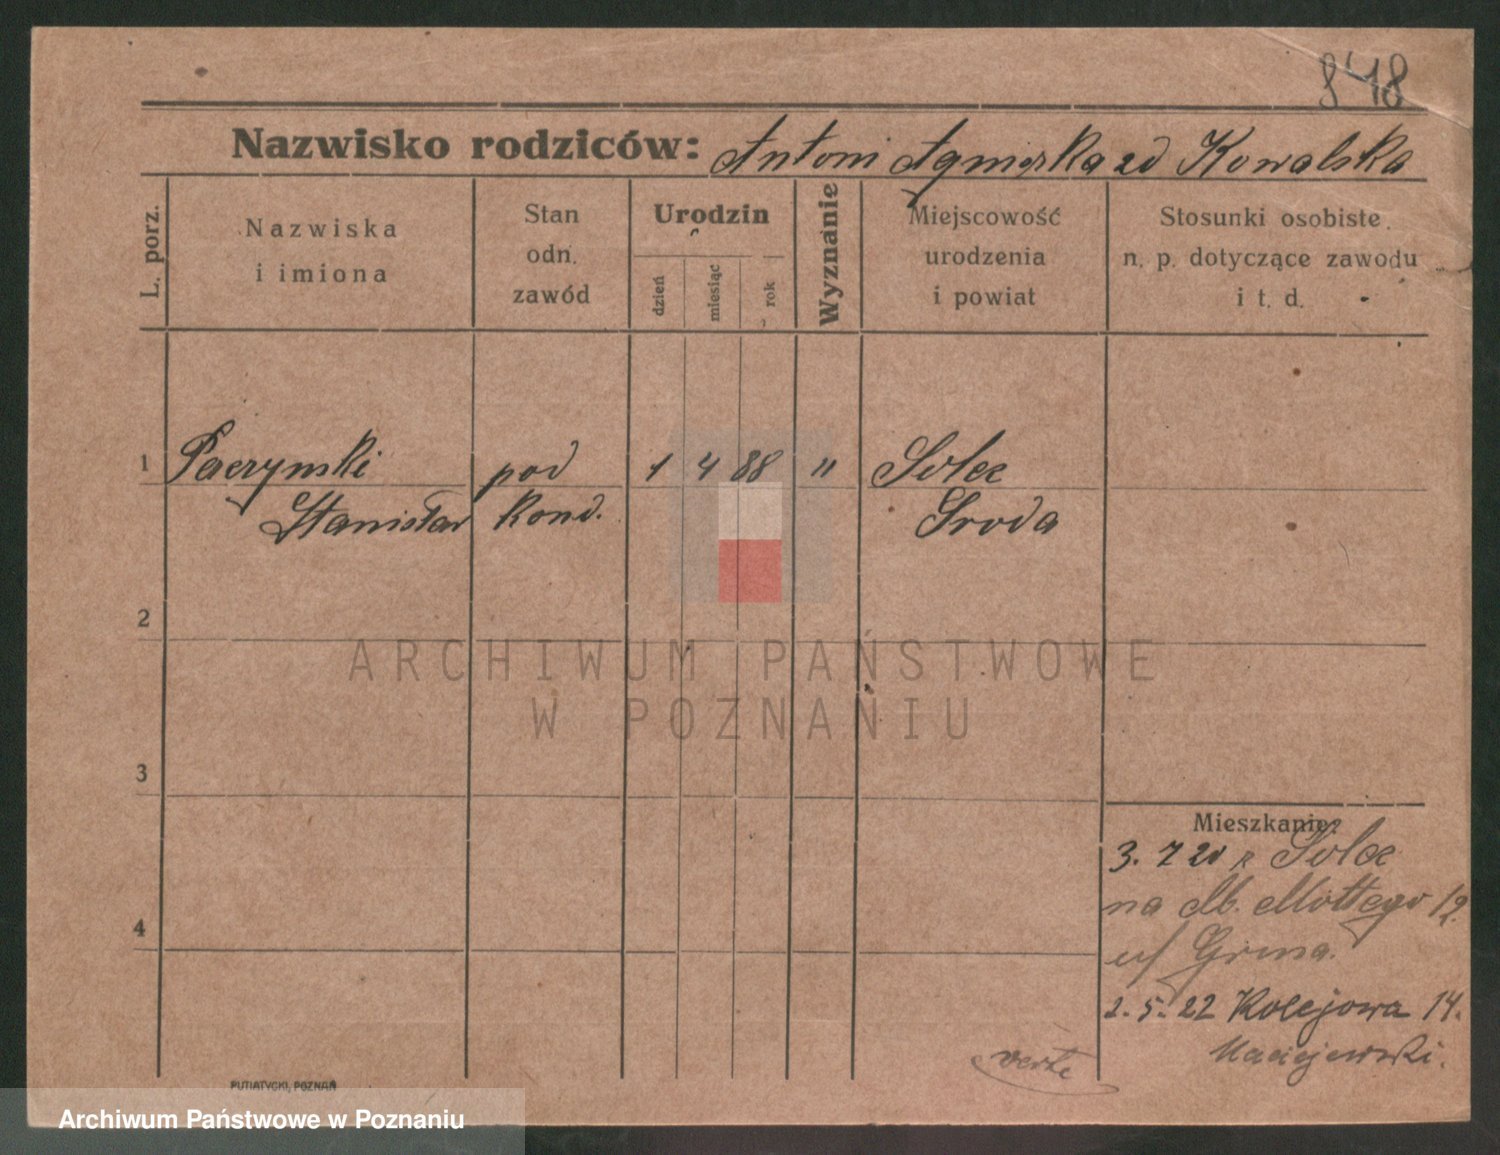 848
Nazwisko rodziców: Antoni Agnieszka zd Kowalska
L. porz.
Nazwiska
i imiona
Stan
odn.
zawód
Urodzin
dzień
miesiąc
rok
Wyznanie
Miejscowość
urodzenia
i powiat
Stosunki osobiste
n. p. dotyczące zawodu
i t. d.
1 Paczynski pod 1 4 88 " Solec
Stanisław kond. Sroda
2
3
4
Mieszkanie:
3. 7 20 z Solec
na Mottego 12
u/
2. 5. 22 Kolejowa 14.
Maciejewski.
verte
PUTIATYCKI, POZNAŃ
ARCHIWUM PAŃSTWOWE
W POZNANIU
Archiwum Państwowe w Poznaniu